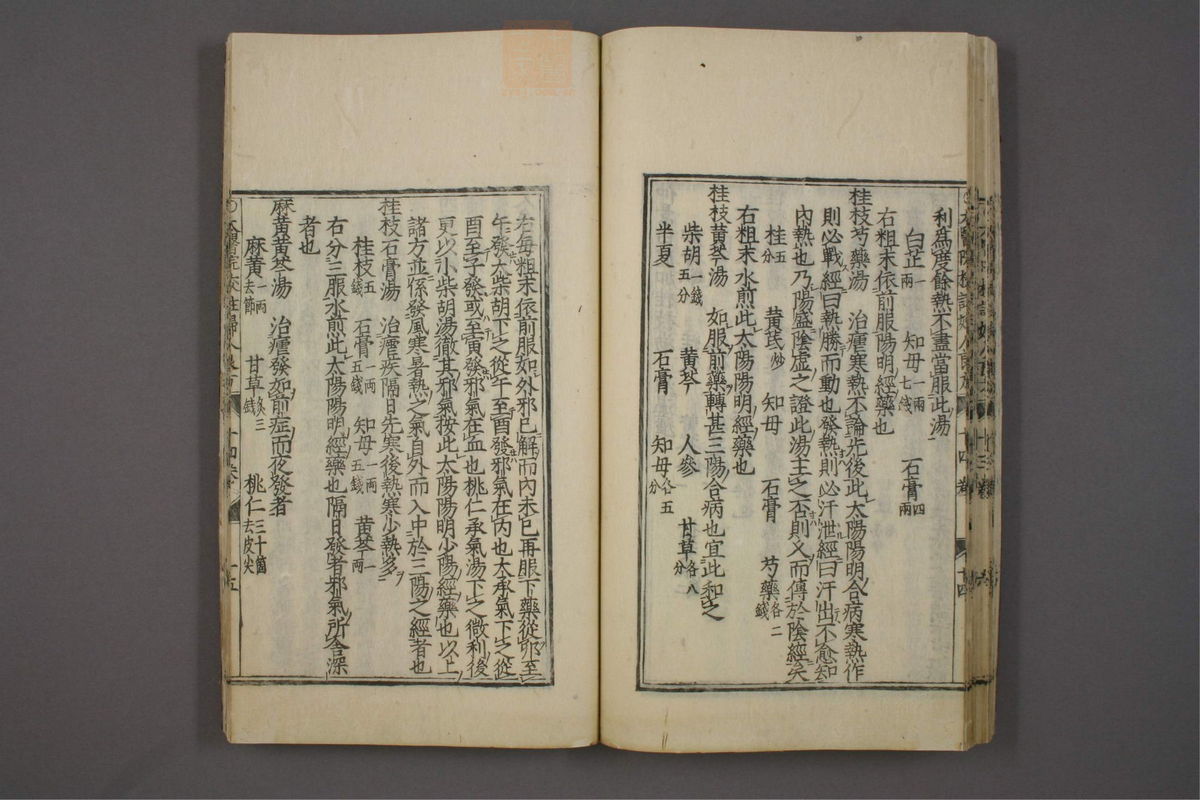 利爲度餘熱不盡當服此湯
白芷一兩 知母一兩七錢 石膏四兩
右粗末依前服陽明經藥也
桂枝芍藥湯 治瘧寒熱不論先後此太陽陽明合病寒熱作
則必戰經曰熱勝而動也發熱則必汗泄經曰汗出不愈知
內熱也乃陽盛陰虛之證此湯主之否則又而傳於陰經矣
桂五分 黃芪炒 知母 石膏 芍藥各二錢
右粗末水煎此太陽陽明經藥也
桂枝黃芩湯 如服前藥轉甚三陽合病也宜此和之
柴胡一錢五分 黃芩 人參 甘草各八分
半夏 石膏 知母各五分
右每粗末依前服如外邪已解而內未已再服下藥從卯至
午發大柴胡下之從午至酉發邪氣在內也大承氣下之從
酉至子發或至寅發邪氣在血也桃仁承氣湯下之微利後
更以小柴胡湯徹其邪氣按此太陽陽明少陽經藥也以上
諸方並係發風寒暑熱之氣自外而入中於三陽之經者也
桂枝石膏湯 治瘧疾隔日先寒後熱寒少熱多
桂枝五錢 石膏一兩五錢 知母一兩五錢 黃芩一兩
右分三服水煎此太陽陽明經藥也隔日發者邪氣所舍深
者也
麻黃黃芩湯 治瘧發如前症而夜發者
麻黃一兩去節 甘草炙三錢 桃仁三十箇去皮尖